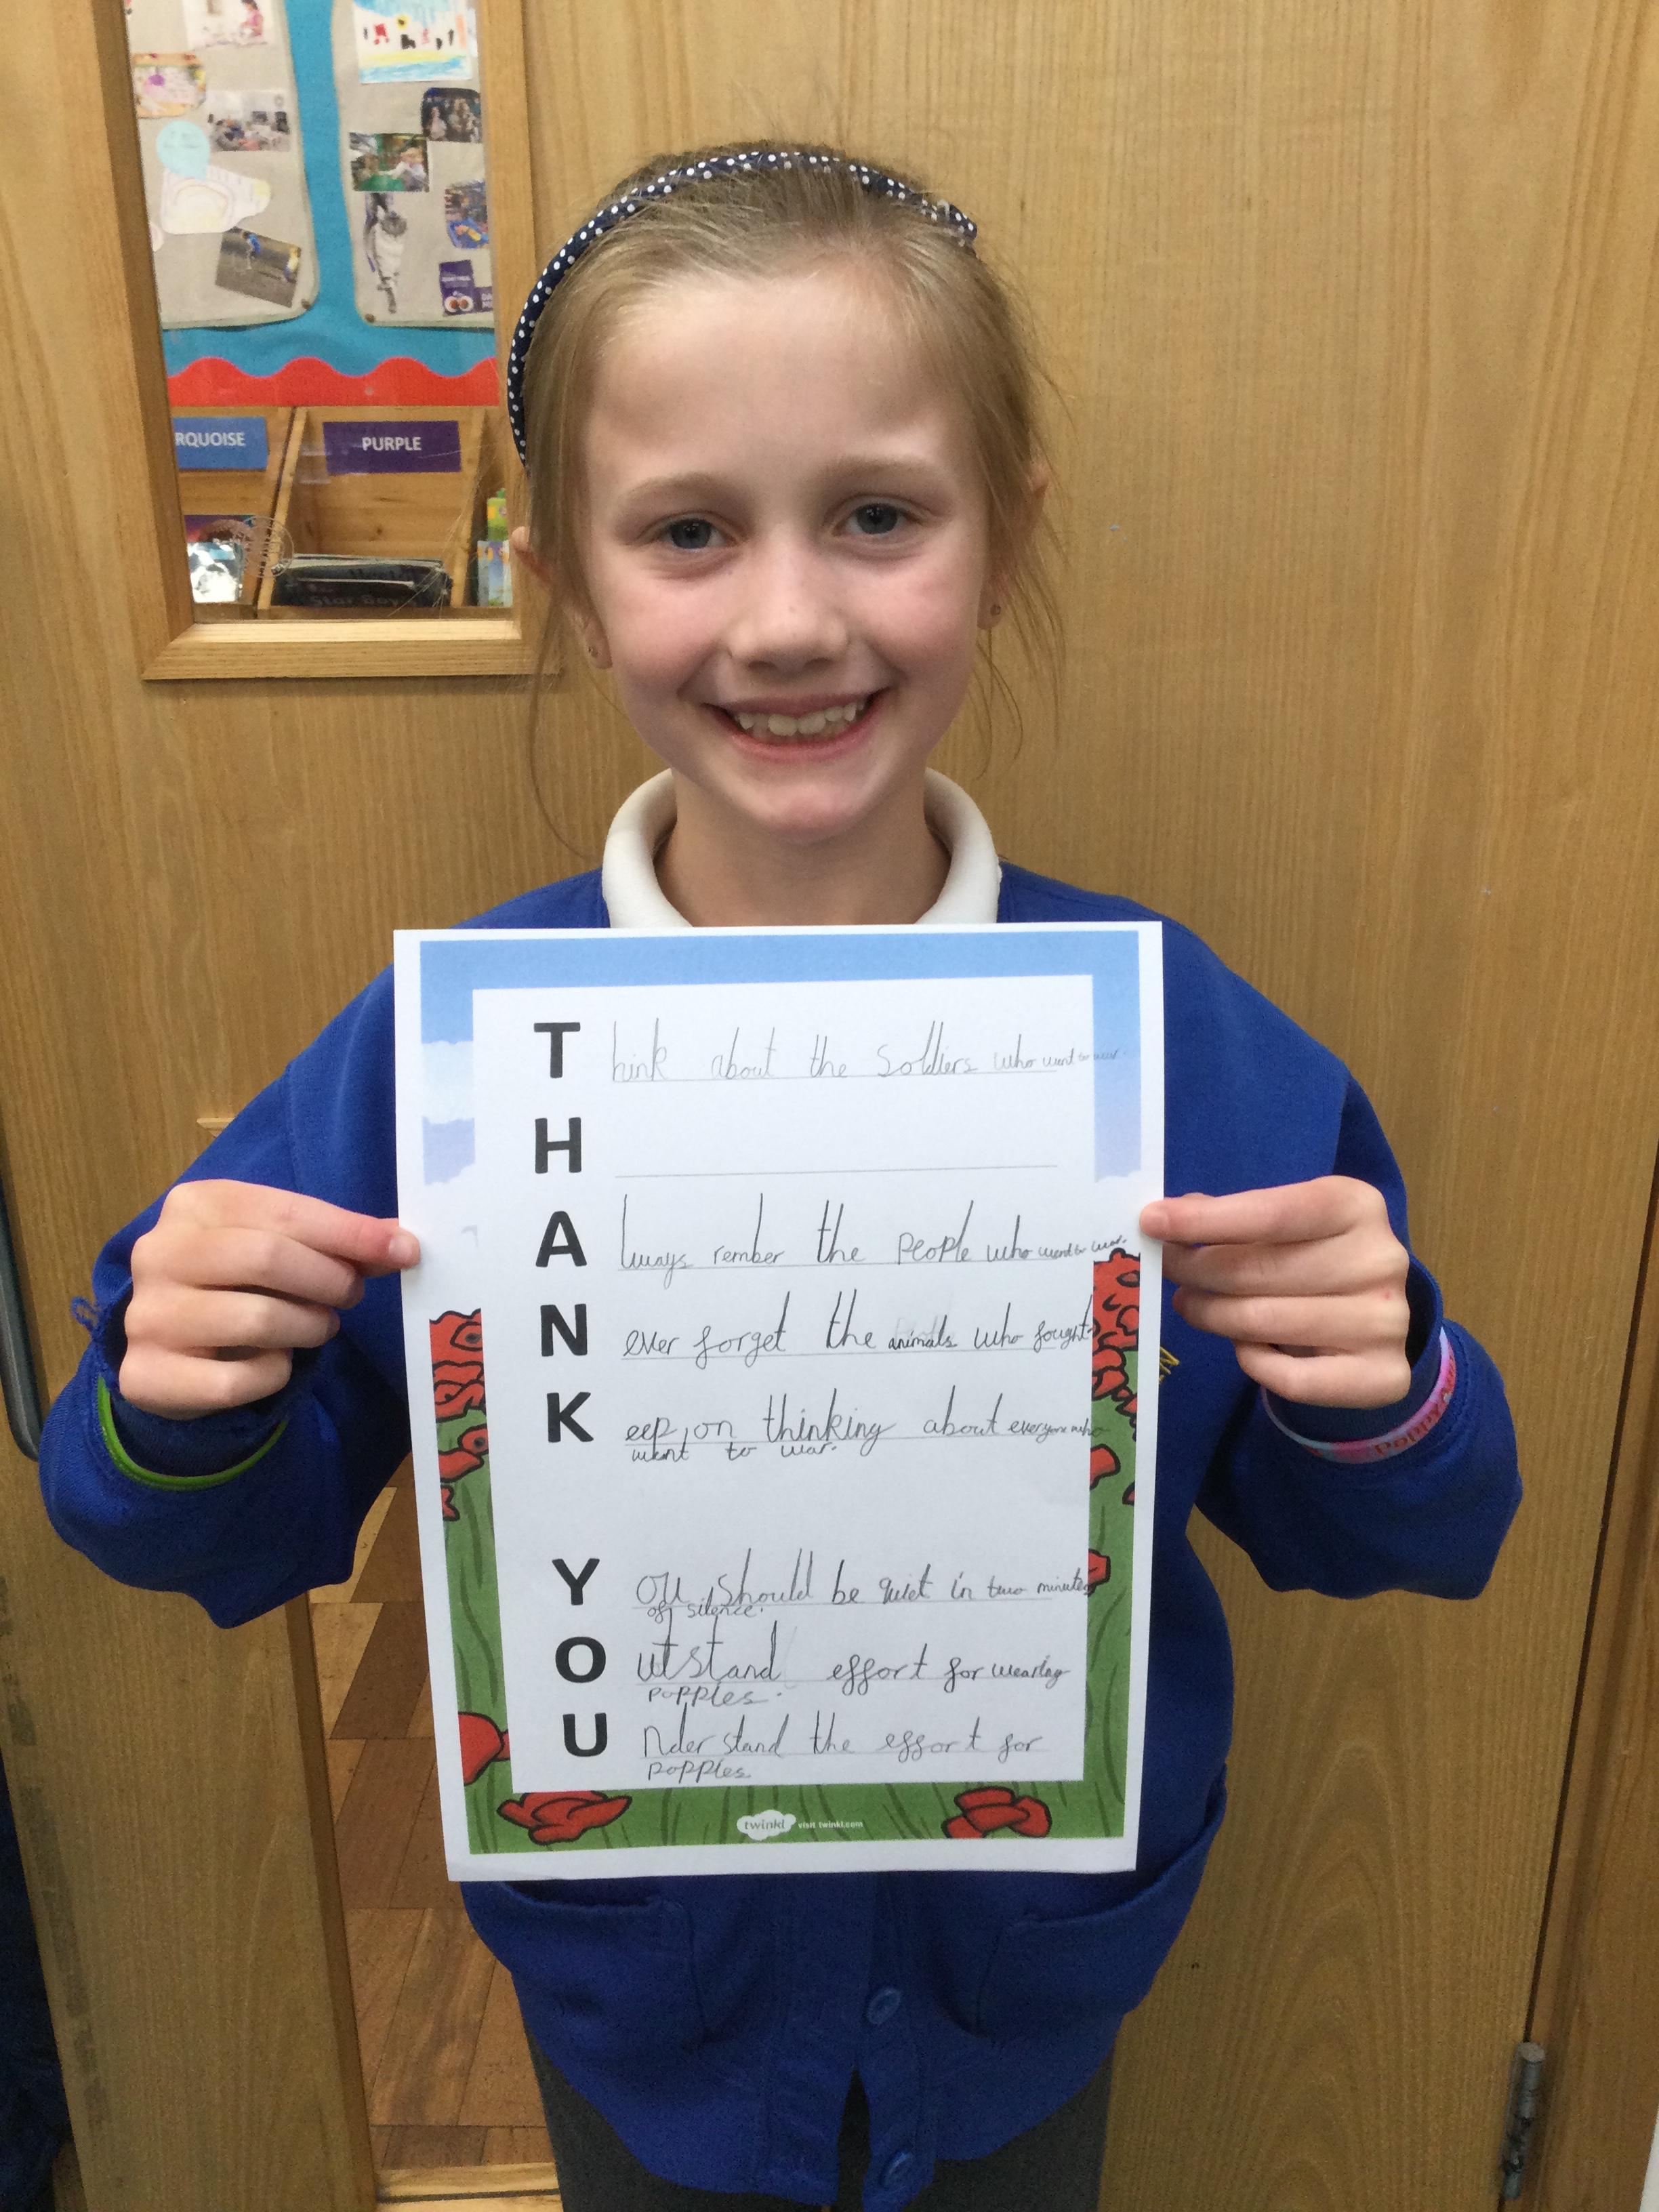 RQUOISE
PURPLE
Think about the soldiers who went to war.
H
Always rember the people who went to war.
Never forget the animals who fought
Keep on thinking about everyone who
went to war.
You should be quiet in two minutes
of silence.
Outstand effort for wearing
popples.
Understand the effort for
popples
twinkl visit twinkl.com